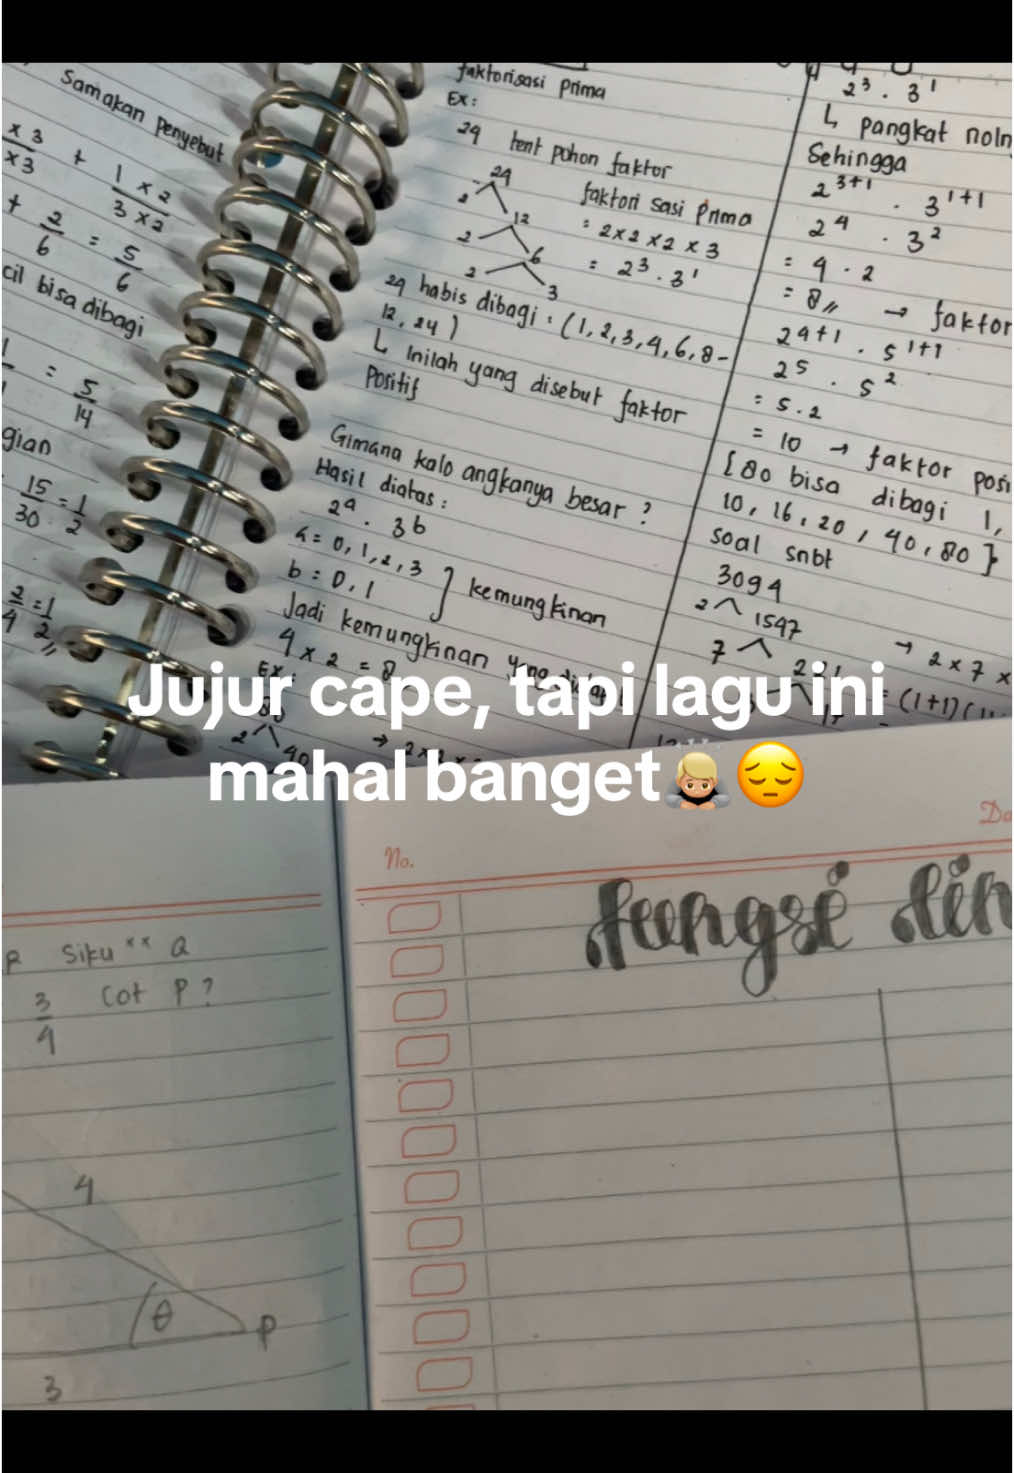 Samakan Penyebut
x 3 + 1 x 2
x 3 3 x 2
+ 2 = 5
6 6
cil bisa dibagi
= 5
14
gian
15 = 1
30 2
2 = 1
4 2 //
faktorisasi prima
Ex:
24 tent pohon faktor
24
2 12
2 6
2 3
faktori sasi prima
= 2 x 2 x 2 x 3
= 2³ . 3¹
24 habis dibagi : (1, 2, 3, 4, 6, 8 -
12, 24)
↳ Inilah yang disebut faktor
Positif
Gimana kalo angkanya besar ?
Hasil diatas :
2ᵃ . 3ᵇ
a = 0, 1, 2, 3
b = 0, 1
} kemungkinan
Jadi kemungkinan
4 x 2 = 8
Ex:
2 40
2³ . 3¹
↳ pangkat
Sehingga
2³⁺¹ . 3¹⁺¹
2⁴ . 3²
= 4 . 2
= 8 // → faktor
2⁴⁺¹ . 5¹⁺¹
2⁵ . 5²
= 5 . 2
= 10 → faktor posi
{80 bisa dibagi 1,
10, 16, 20, 40, 80}
soal snbt
3094
2 1547
7
→ 2 x 7 x
= (1+1) (
Jujur cape, tapi lagu ini
mahal banget🙇🏼😔
No.
Da
fungsi lin
R siku" Q
3 Cot P ?
4
4
θ P
3